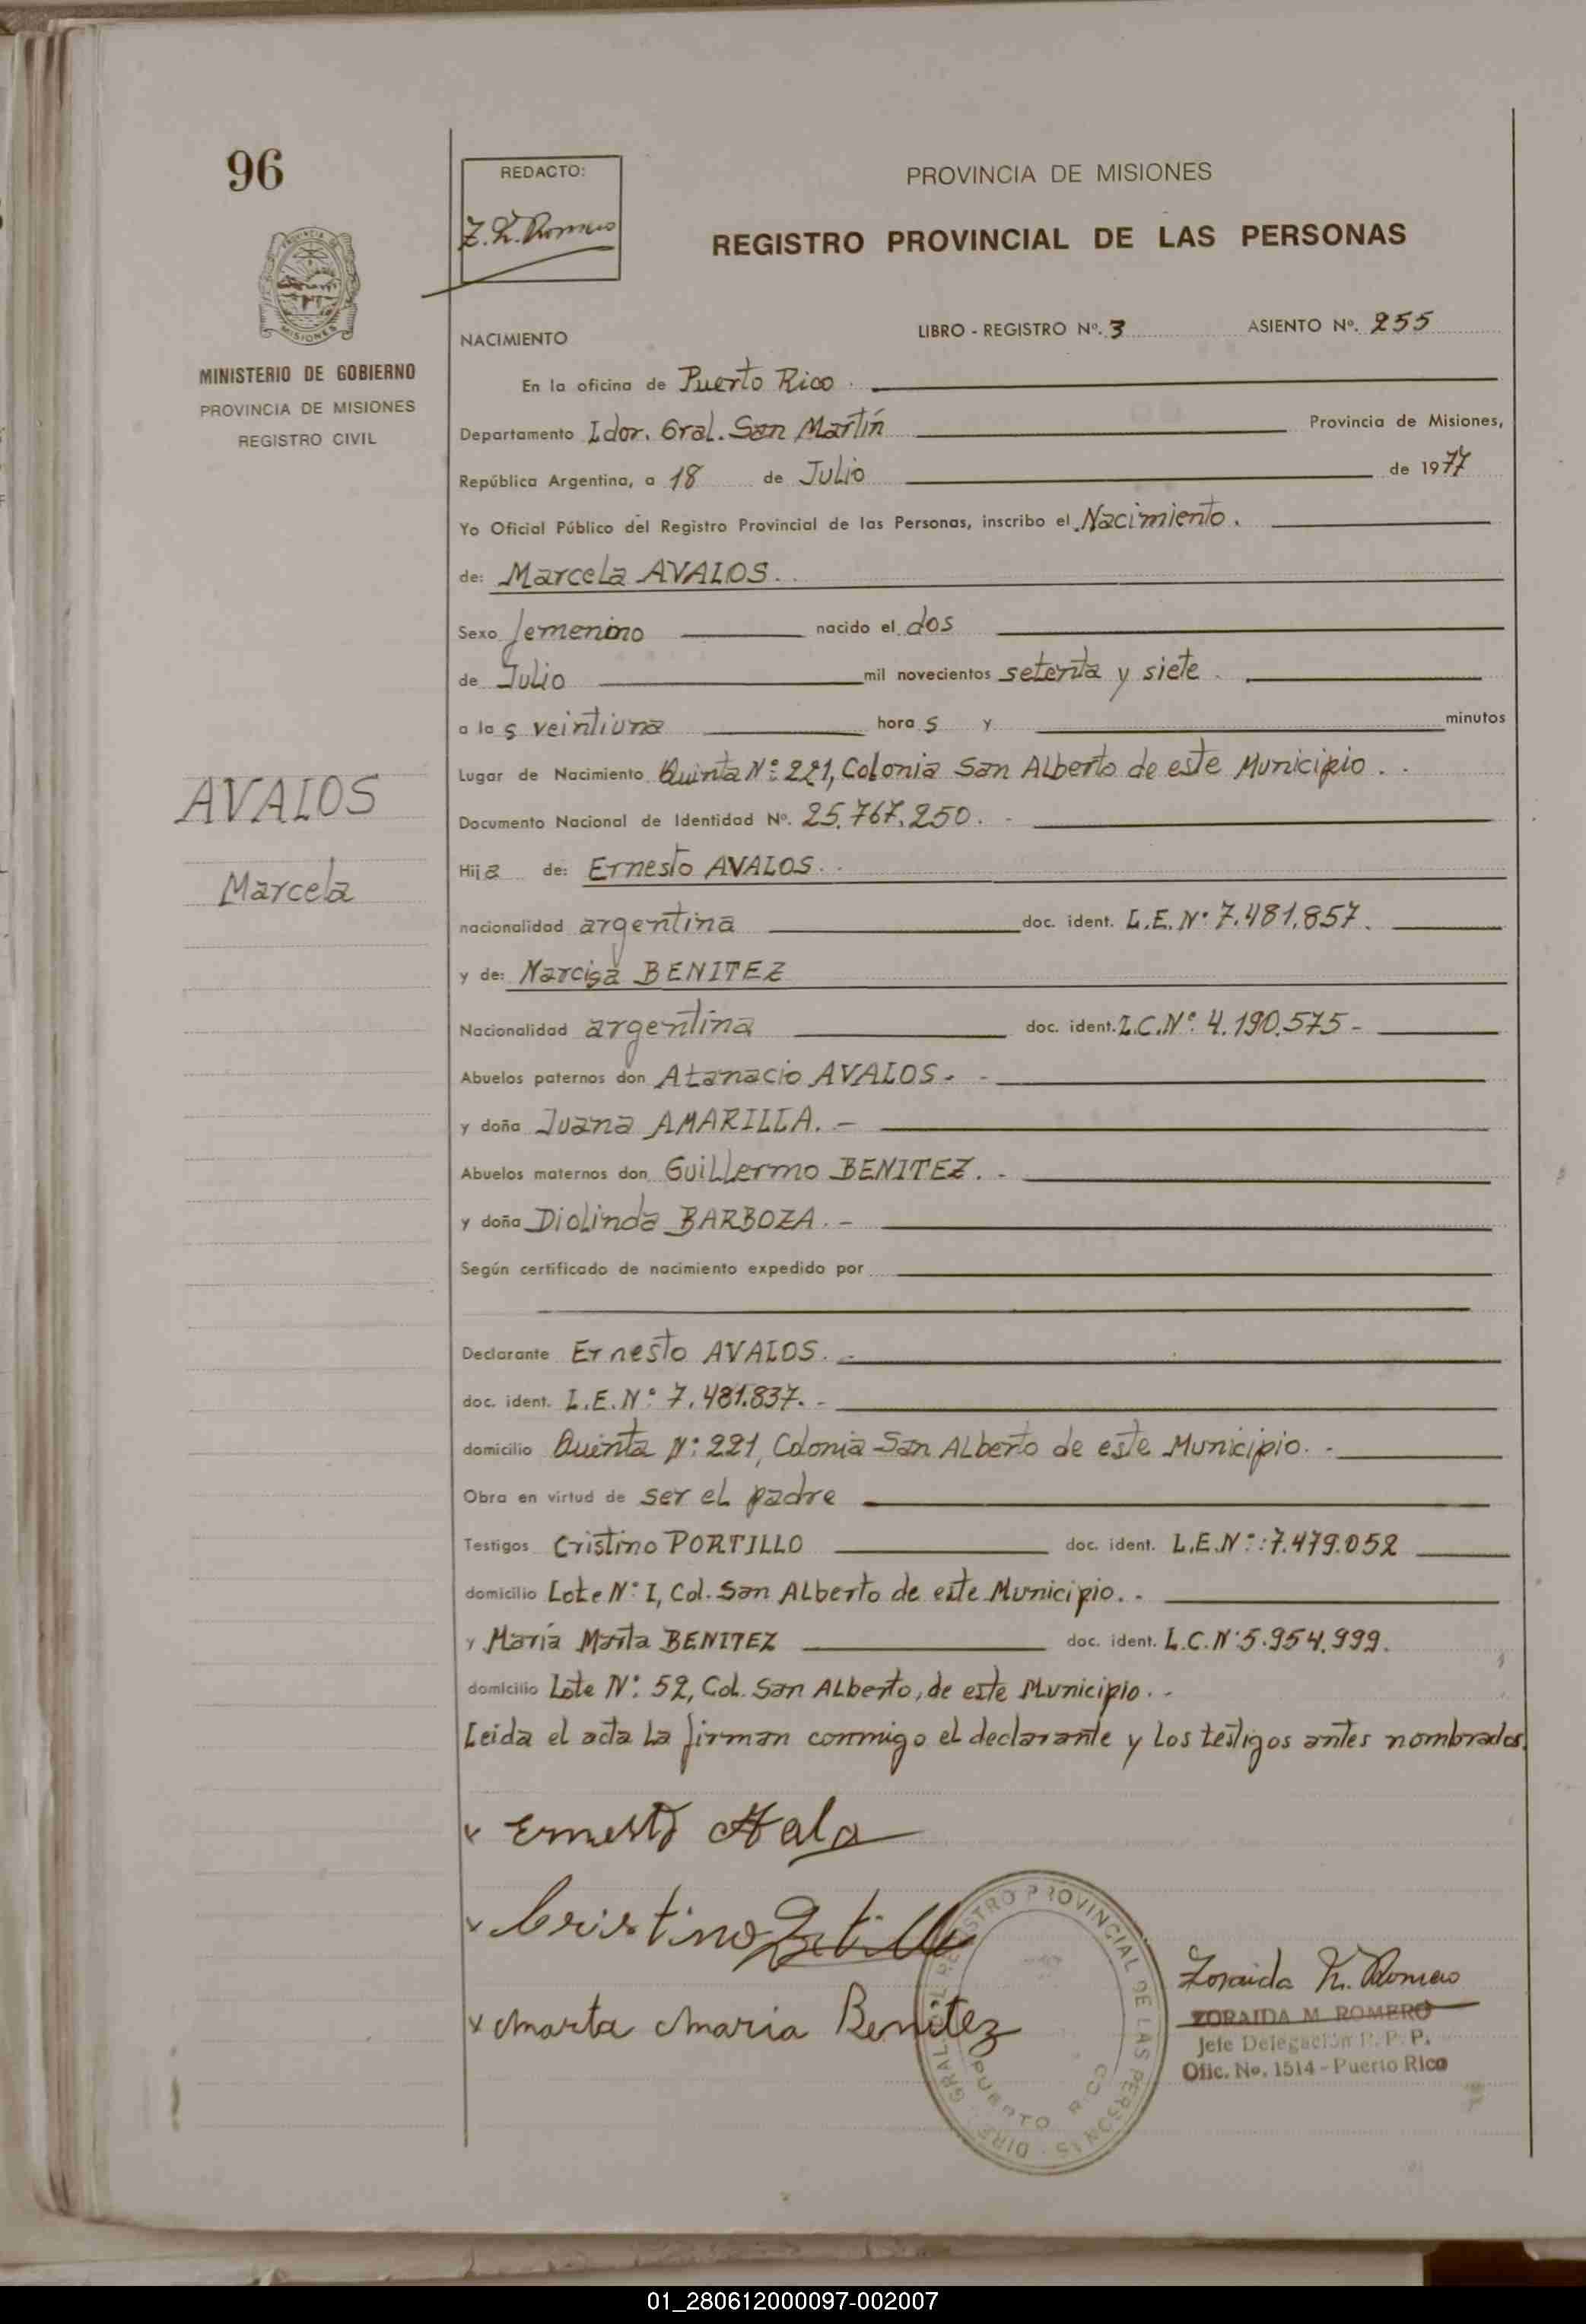 96
REDACTO:
Z. M. Romero
PROVINCIA DE MISIONES
REGISTRO PROVINCIAL DE LAS PERSONAS
MINISTERIO DE GOBIERNO
PROVINCIA DE MISIONES
REGISTRO CIVIL
NACIMIENTO LIBRO - REGISTRO Nº. 3 ASIENTO Nº. 255
En la oficina de Puerto Rico.
Departamento Ldor. Gral. San Martín Provincia de Misiones,
República Argentina, a 18 de Julio de 1977
Yo Oficial Público del Registro Provincial de las Personas, inscribo el Nacimiento.
de: Marcela AVALOS.
Sexo femenino nacido el dos
de Julio mil novecientos setenta y siete.
a las veintiuna horas y minutos
Lugar de Nacimiento Quinta Nº: 221, Colonia San Alberto de este Municipio.
Documento Nacional de Identidad Nº. 25.767.250.
Hija de: Ernesto AVALOS.
nacionalidad argentina doc. ident. L.E. Nº 7.481.857.
y de: Narcisa BENITEZ
Nacionalidad argentina doc. ident. L.C. Nº 4.190.575-
Abuelos paternos don Atanacio AVALOS.-
y doña Juana AMARILLA.-
Abuelos maternos don Guillermo BENITEZ.-
y doña Diolinda BARBOZA.-
Según certificado de nacimiento expedido por
Declarante Ernesto AVALOS.-
doc. ident. L.E. Nº 7.481.837.-
domicilio Quinta Nº: 221, Colonia San Alberto de este Municipio.-
Obra en virtud de ser el padre
Testigos Cristino PORTILLO doc. ident. L.E. Nº: 7.479.052
domicilio Lote Nº: 1, Col. San Alberto de este Municipio.-
y María Marta BENITEZ doc. ident. L.C. Nº 5.954.999.
domicilio Lote Nº: 52, Col. San Alberto, de este Municipio.-
Leida el acta la firman conmigo el declarante y los testigos antes nombrados.
AVALOS
Marcela
x Ernesto
x Cristino Portillo
x Marta Maria Benitez
DIRE. GRAL. DEL REGISTRO PROVINCIAL DE LAS PERSONAS
PUERTO RICO
Zoraida M. Romero
ZORAIDA M. ROMERO
Jefe Delegación R. P. P.
Ofic. No. 1514 - Puerto Rico
01_280612000097-002007